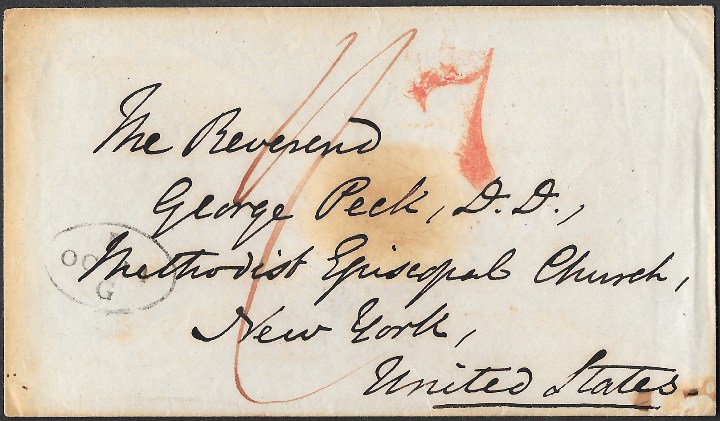 7
The Reverend
George Peck, D.D.,
Methodist Episcopal Church,
New York,
United States.